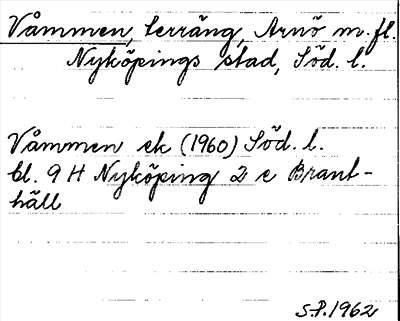 Våmmen, terräng, Arnö m. fl.
Nyköpings stad, Söd. l.
Våmmen ek (1960) Söd. l.
bl. 9 H Nyköping 2 c Brant-
häll
S.P. 1962